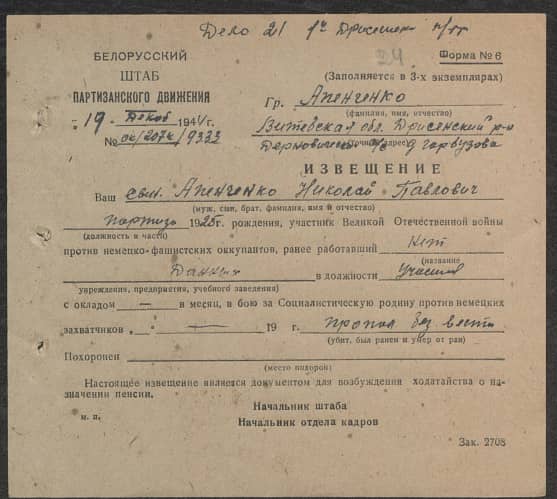 Дело 21
БЕЛОРУССКИЙ
ШТАБ
ПАРТИЗАНСКОГО ДВИЖЕНИЯ
19 Декаб 1944 г.
№
Форма № 6
(Заполняется в 3-х экземплярах)
Гр. Апенченко
(фамилия, имя, отчество)
Витебская обл. Дрисенский р-н
(точный адрес)
ИЗВЕЩЕНИЕ
Ваш сын Апенченко Николай Павлович
(муж, сын, брат, фамилия, имя и отчество)
партиз 1925 г. рождения, участник Великой Отечественной войны
(должность и часть)
против немецко-фашистских оккупантов, ранее работавший нет
(название
Данных в должности учащийся
учреждения, предприятия, учебного заведения)
с окладом — в месяц, в бою за Социалистическую родину против немецких
захватчиков „ “ — 19 г. пропал без вести
(убит, был ранен и умер от ран)
Похоронен
(место похорон)
Настоящее извещение является документом для возбуждения ходатайства о на-
значении пенсии.
Начальник штаба
м. п.
Начальник отдела кадров
Зак. 2708